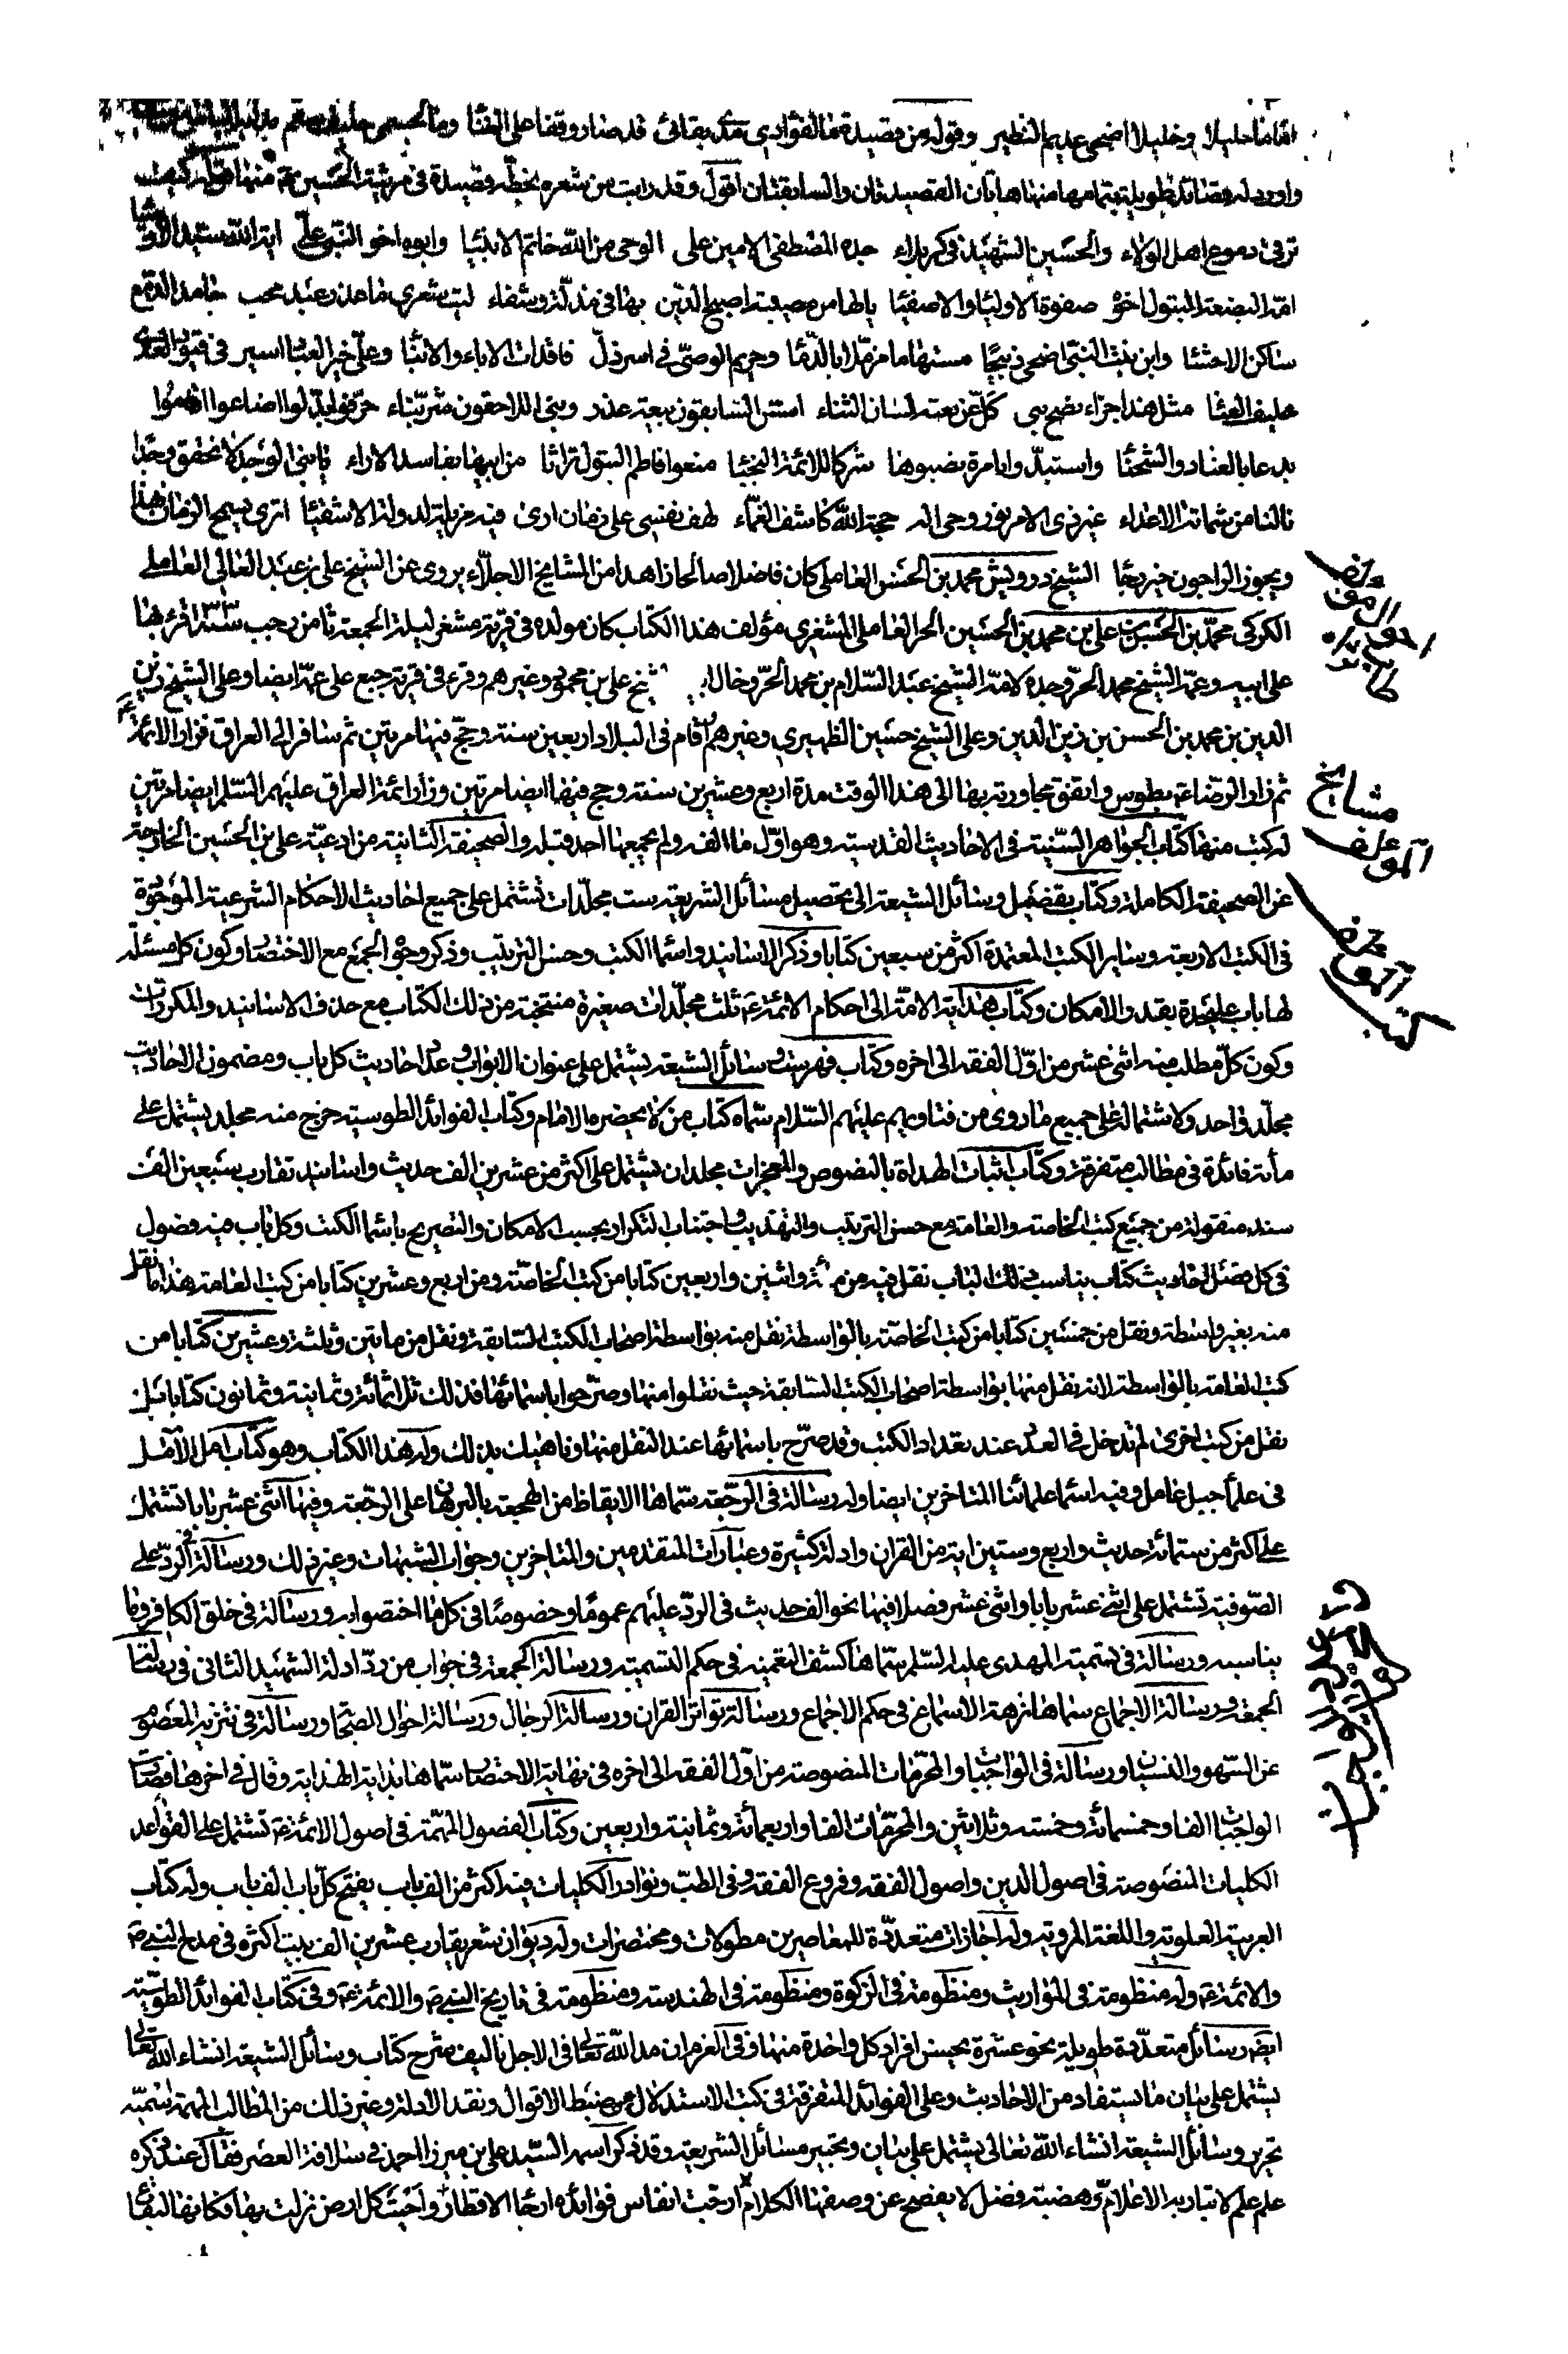 اماما جليلا وخليلا اضحى عديم النظير وقوله من قصيدة مدى بقائى قد صار وقفا على الفنا
واورد له قصائد طويلة بتمامها منها هاتان القصيدتان والسابقتان اقول وقد رايت من شعره بخطه قصيدة فى مرثية الحسين ع منها قوله
ترقى دموع اهل الولاء والحسين الشهيد فى كربلاء جده المصطفى الامين على الوحى من الله خاتم الانبيا وابوه اخو النبى على اية الله سيد الاوصيا
امه البضعة البتول اخوه صفوة الاوليا والاصفيا يا لها من مصيبة اصبح الدين بها فى مذلة وشقاء ليت شعرى ما عذر عبد محب جامد الدمع
ساكن الاحشا وابن بنت النبى اضحى ذبيحا مستهاما مزملا بالدما وحريم الوصى فى اسر ذل فاقدات الاباء والابنا وعلى خير العباد اسير فى قيود العدى
حليف العنا مثل هذا جزاء نصح نبى كل عن نعته لسان الثناء اسس السابقون بيعة غدر وبنى اللاحقون شر بناء حرفوا بدلوا اضاعوا اقاموا
بدعا بالعناد والشحنا واستبدوا بامرة نصبوها شركا للائمة النجبا منعوا فاطم البتول تراثا من ابيها بفاسد الاراء
نالنا من شماتة الاعداء غير ذى الامر نور وحى اله حجة الله كاشف الغماء لهف نفسى على زمان ارى فيه مزيل لدولة الاشقيا اترى يسمح الزمان بهذا
ويجوز الراجون خير رجا الشيخ درويش محمد بن الحسن العاملى كان فاضلا صالحا زاهدا من المشايخ الاجلاء يروى عن الشيخ على بن عبد العالى العاملى
الكركى محمد بن الحسن بن على بن محمد بن الحسين الحر العاملى المشغرى مؤلف هذا الكتاب كان مولده فى قرية مشغر ليلة الجمعة ثامن رجب سنة ١٠٣٣ قرء بها
على ابيه وعمه الشيخ محمد الحر وجده لامه الشيخ عبد السلام بن محمد الحر وخال ابيه الشيخ على بن محمود وغيرهم وقرء فى قرية جبع على عمه ايضا وعلى الشيخ زين
الدين بن محمد بن الحسن بن زين الدين وعلى الشيخ حسين الظهيرى وغيرهم اقام فى البلاد اربعين سنة وحج فيها مرتين ثم سافر الى العراق فزار الائمة ع
ثم زار الرضا ع بطوس واتفق مجاورته بها الى هذا الوقت مدة اربع وعشرين سنة وحج فيها ايضا مرتين وزار ائمة العراق عليهم السلم ايضا مرتين
له كتب منها كتاب الجواهر السنية فى الاحاديث القدسية وهو اول ما الفه ولم يجمعها احد قبله والصحيفة الثانية من ادعية على بن الحسين الخارجة
عن الصحيفة الكاملة وكتاب تفصيل وسائل الشيعة الى تحصيل مسائل الشريعة ست مجلدات تشتمل على جميع احاديث الاحكام الشرعية الموجودة
فى الكتب الاربعة وساير الكتب المعتمدة اكثر من سبعين كتابا وذكر الاسانيد واسما الكتب وحسن الترتيب وذكر وجوه الجمع مع الاختصار وكون كل مسئلة
لها باب عليحدة بقدر الامكان وكتاب هداية الامة الى احكام الائمة ع ثلث مجلدات صغيرة منتخبة من ذلك الكتاب مع حذف الاسانيد والمكررات
وكون كل مطلب منه اثنى عشر من اول الفقه الى اخره وكتاب فهرست وسائل الشيعة يشتمل على عنوان الابواب وعدد احاديث كل باب ومضمون الاحاديث
مجلد واحد ولاشتماله على جميع ما روى من فتاويهم عليهم السلام سماه كتاب من لا يحضره الامام وكتاب الفوائد الطوسية خرج منه مجلد يشتمل على
مأة فائدة فى مطالب متفرقة وكتاب اثبات الهداة بالنصوص والمعجزات مجلدان يشتمل على اكثر من عشرين الف حديث واسانيد تقارب سبعين الف
سند منقولة من جميع كتب الخاصة والعامة مع حسن الترتيب والتهذيب واجتناب التكرار بحسب الامكان والتصريح باسما الكتب وكل باب فيه فصول
فى كل فصل احاديث كتاب يناسب ذلك الباب نقل فيه من مأة واثنين واربعين كتابا من كتب الخاصة ومن اربع وعشرين كتابا من كتب العامة هذا ما نقل
منه بغير واسطة ونقل من خمسين كتابا من كتب الخاصة بالواسطة نقل منه بواسطة اصحاب الكتب السابقة ونقل من ماتين وثلثة وعشرين كتابا من
كتب العامة بالواسطة لانه نقل منها بواسطة اصحاب الكتب السابقة حيث نقلوا منها وصرحوا باسمائها فذلك ثلاثمائة وثمانية وثمانون كتابا بل
نقل من كتب اخرى لم تدخل فى العدد عند تعداد الكتب وقد صرح باسمائها عند النقل منها وناهيك بذلك وله هذا الكتاب وهو كتاب امل الآمل
فى علما جبل عامل وفيه اسما علمائنا المتاخرين ايضا وله رسالة فى الرجعة سماها الايقاظ من الهجعة بالبرهان على الرجعة وفيها اثنى عشر بابا تشتمل
على اكثر من ستمائة حديث واربع وستين اية من القران وادلة كثيرة وعبارات المتقدمين والمتاخرين وجواب الشبهات وغير ذلك ورسالة فى الرد على
الصوفية تشتمل على اثنى عشر بابا واثنى عشر فصلا فيها نحو الف حديث فى الرد عليهم عموما وخصوصا فى كل ما اختصوا به ورسالة فى خلق الكافر وما
يناسبه ورسالة فى تسمية المهدى عليه السلم سماها كشف التعمية فى حكم التسمية ورسالة الجمعة فى جواب من رد ادلة الشهيد الثانى فى رسالته
الجمعة ورسالة الاجماع سماها نزهة الاسماع فى حكم الاجماع ورسالة تواتر القران ورسالة الرجال ورسالة احوال الصحابة ورسالة فى تنزيه المعصوم
عن السهو والنسيان ورسالة فى الواجبات والمحرمات المنصوصة من اول الفقه الى اخره فى نهاية الاختصار سماها بداية الهداية وقال فى اخرها فصارت
الواجبات الفا وخمسمائة وخمسه وثلاثين والمحرمات الفا واربعمائة وثمانية واربعين وكتاب الفصول المهمة فى اصول الائمة ع تشتمل على القواعد
الكليات المنصوصة فى اصول الدين واصول الفقه وفروع الفقه وفى الطب ونوادر الكليات فيه اكثر من الف باب يفتح كل باب الف باب وله كتاب
العربية العلوية واللغة المروية وله اجازات متعددة للمعاصرين مطولات ومختصرات وله ديوان شعر يقارب عشرين الف بيت اكثره فى مدح النبى ص
والائمة ع وله منظومة فى المواريث ومنظومة فى الزكوة ومنظومة فى الهندسة ومنظومة فى تاريخ النبى ص والائمة ع وفى كتاب الفوائد الطوسية
ايضا رسائل متعددة طويلة نحو عشرة يحسن افراد كل واحدة منها وفى العزم ان مد الله تعالى فى الاجل تاليف شرح كتاب وسائل الشيعة انشاء الله تعالى
يشتمل على بيان ما يستفاد من الاحاديث وعلى الفوائد المتفرقة فى كتب الاستدلال من ضبط الاقوال ونقد الادلة وغير ذلك من المطالب المهمة اسميه
تحرير وسائل الشيعة انشاء الله تعالى يشتمل على بيان وتحبير مسائل الشريعة وقد ذكر اسمه السيد على بن ميرزا احمد فى سلافة العصر فقال عند ذكره
علم علم لا تباريه الاعلام وهضبة فضل لا يفصح عن وصفها الكلام ارجت انفاس فوائده ارجا الاقطار واحيت كل ارض نزلت بها فكانها لبقاع
مشايخ
المولف
كتب